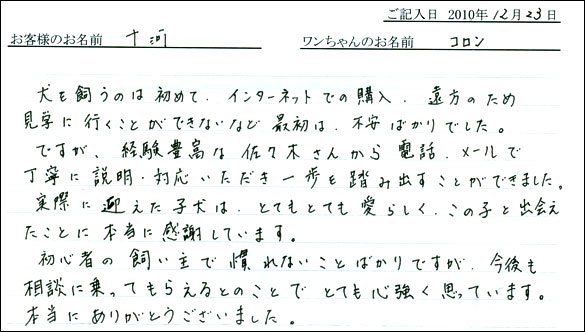 ご記入日 2010年12月23日
お客様のお名前 十河 ワンちゃんのお名前 コロン
犬を飼うのは初めて、インターネットでの購入、遠方のため
見学に行くことができないなど最初は、不安ばかりでした。
ですが、経験豊富な佐々木さんから電話、メールで
丁寧に説明・対応いただき一歩を踏み出すことができました。
実際に迎えた子犬は、とてもとても愛らしく、この子と出会え
たことに本当に感謝しています。
初心者の飼い主で慣れないことばかりですが、今後も
相談に乗ってもらえるとのことでとても心強く思っています。
本当にありがとうございました。